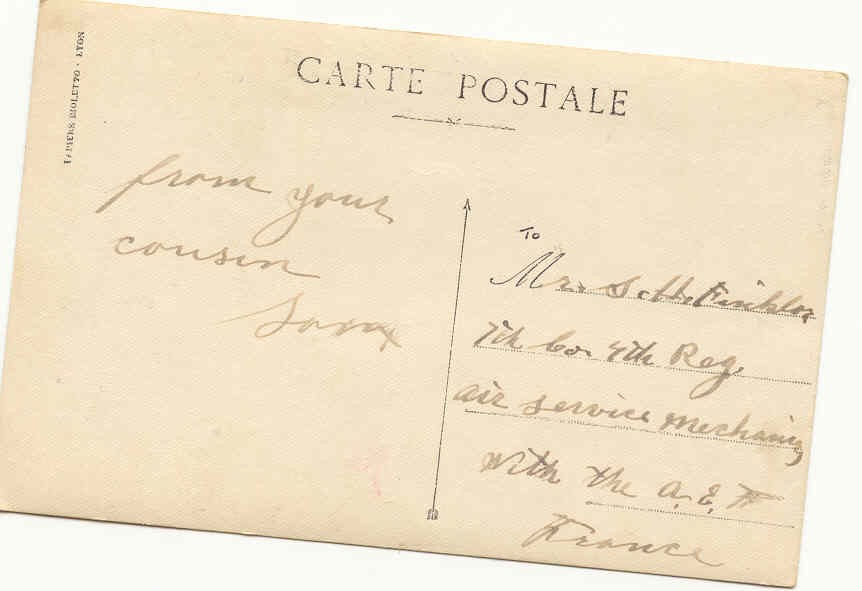 CARTE POSTALE
PIERE BIOLETTO · LYON
from your
cousin
To
Mr. S. H.
7th Co. 4th Reg.
air service mechanics
with the A. E. F
France